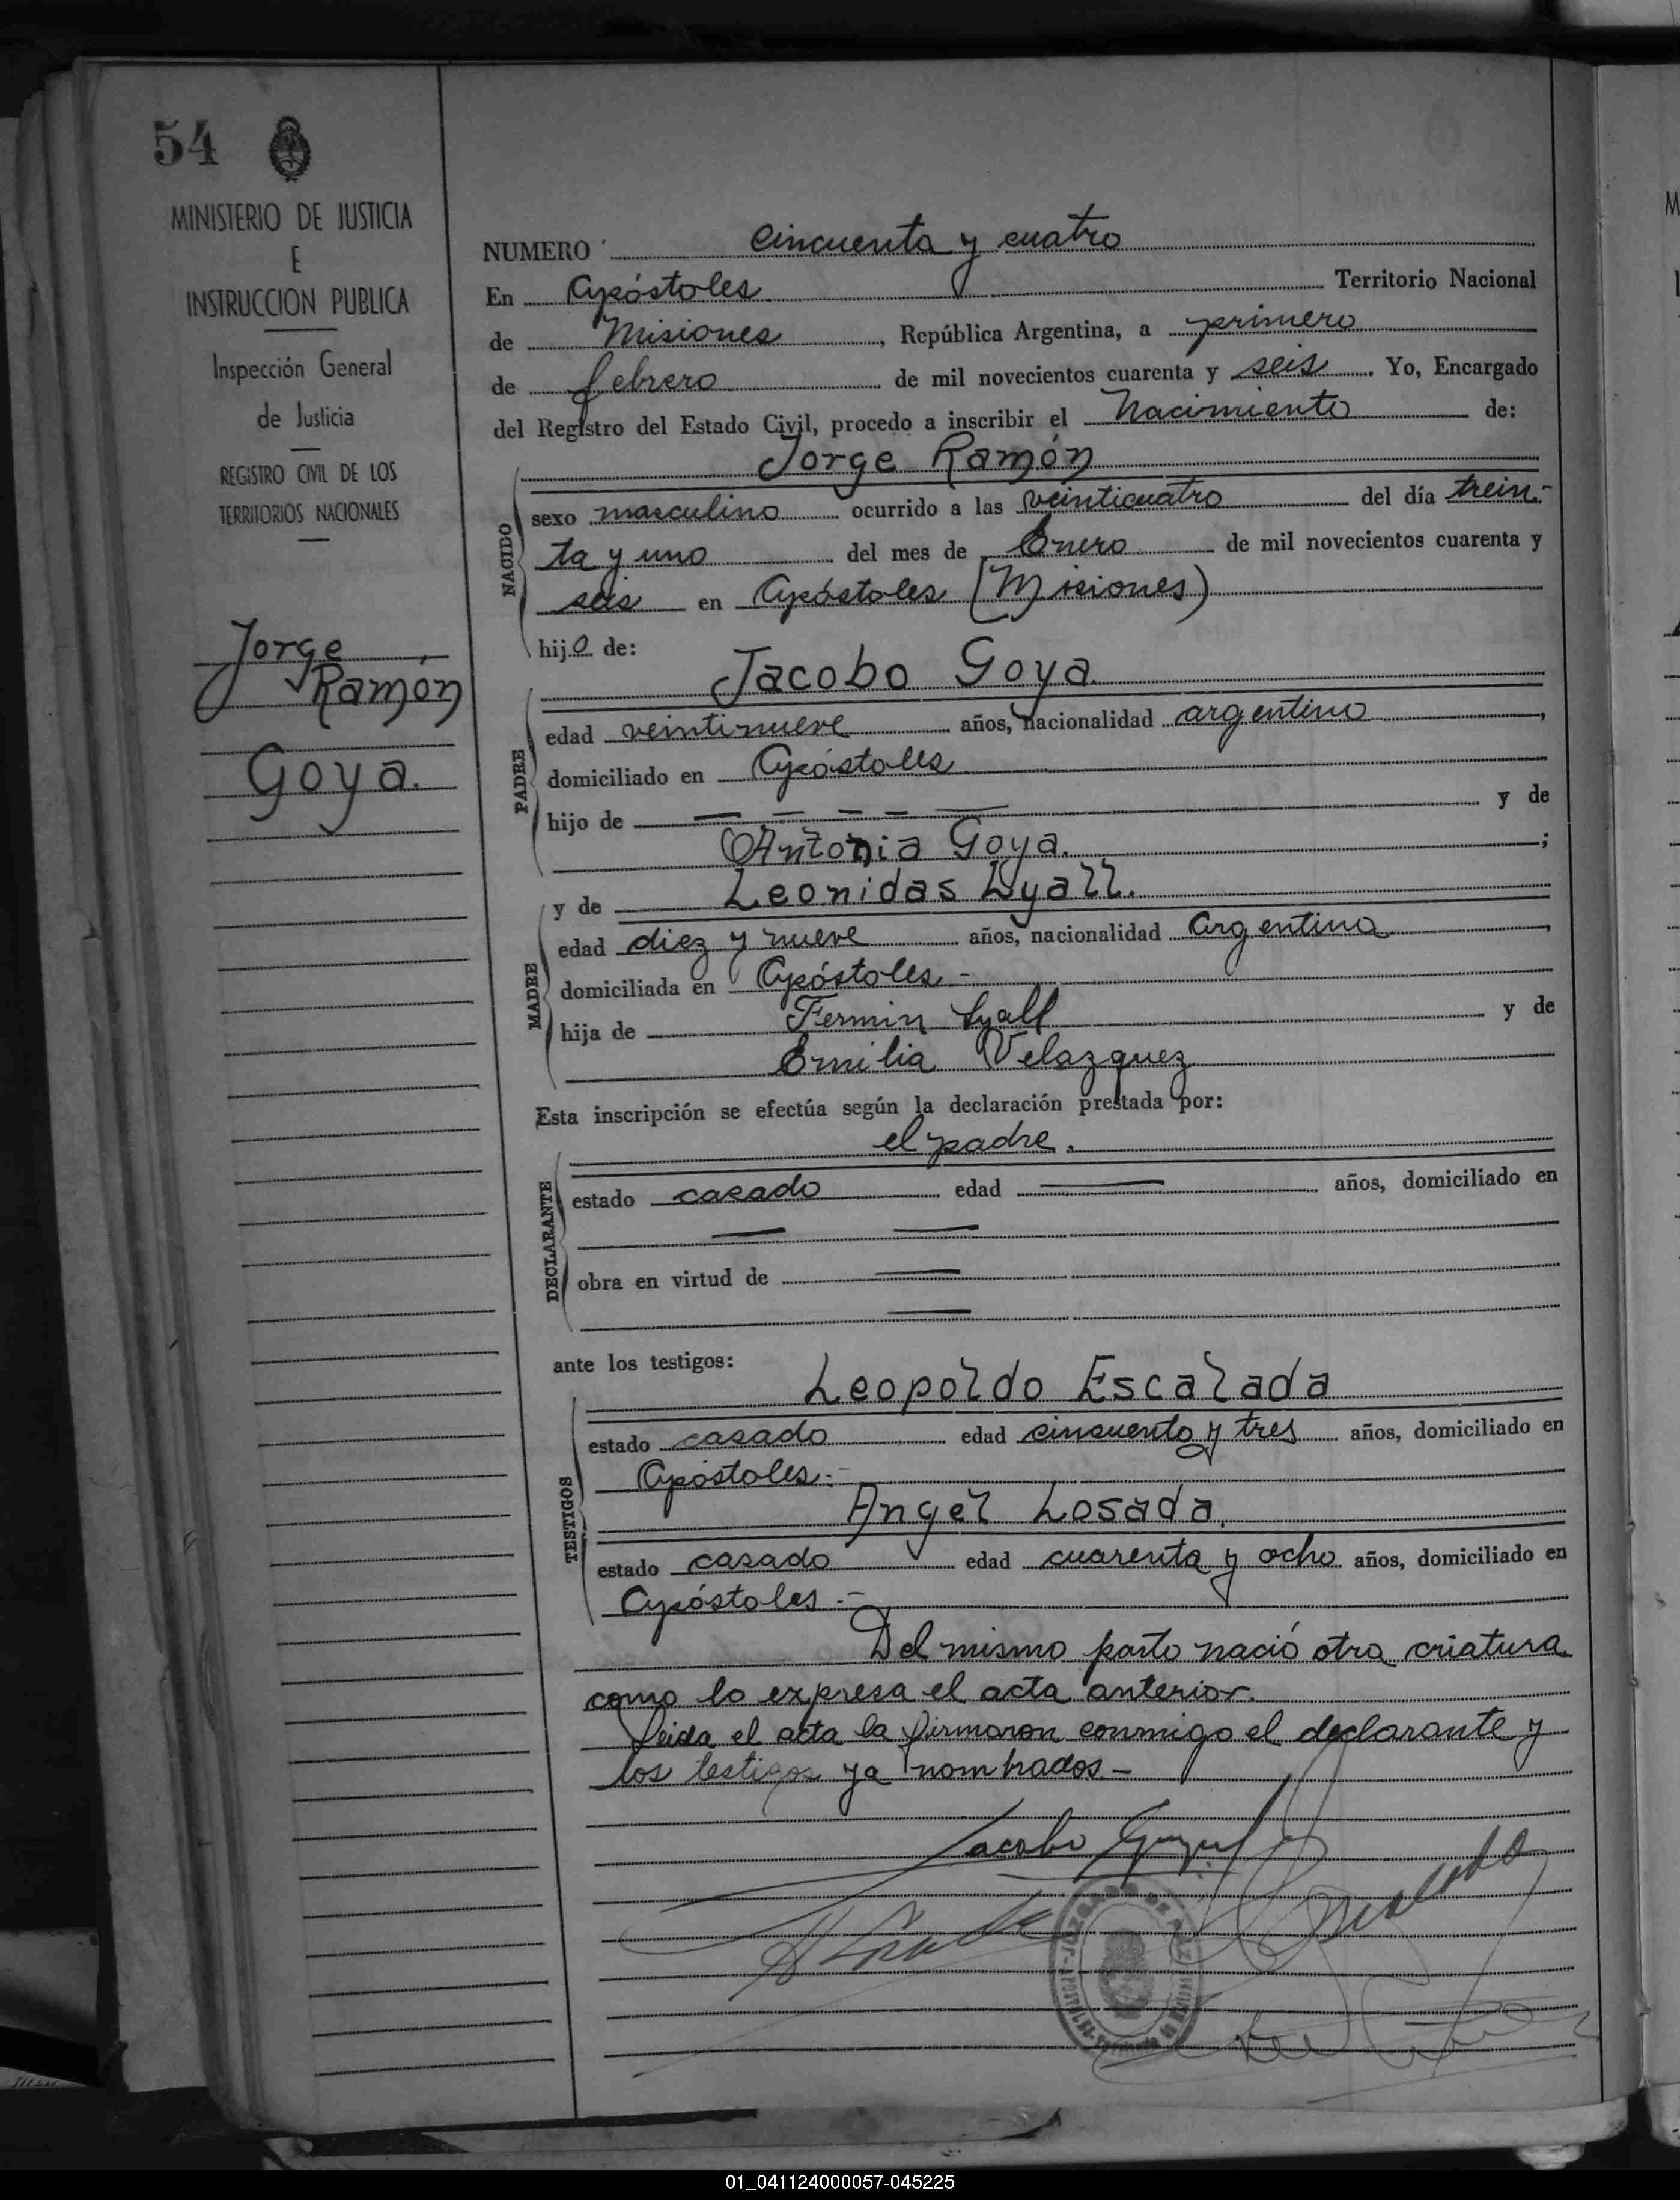 54
MINISTERIO DE JUSTICIA
E
INSTRUCCION PUBLICA
Inspección General
de Justicia
REGISTRO CIVIL DE LOS
TERRITORIOS NACIONALES
Jorge
Ramón
Goya.
NUMERO cincuenta y cuatro
En Apóstoles Territorio Nacional
de Misiones, República Argentina, a primero
de febrero de mil novecientos cuarenta y seis. Yo, Encargado
del Registro del Estado Civil, procedo a inscribir el Nacimiento de:
Jorge Ramón
NACIDO
sexo masculino ocurrido a las veinticuatro del día trein-
ta y uno del mes de Enero de mil novecientos cuarenta y
seis en Apóstoles (Misiones)
hijo de:
Jacobo Goya.
PADRE
edad veintinueve años, nacionalidad argentino,
domiciliado en Apóstoles
hijo de — — — — — y de
Antonia Goya. ;
y de Leonidas Lyall.
MADRE
edad diez y nueve años, nacionalidad Argentina,
domiciliada en Apóstoles -
hija de Fermin Lyall y de
Emilia Velazquez
Esta inscripción se efectúa según la declaración prestada por:
el padre.
DECLARANTE
estado casado edad — años, domiciliado en
— —
obra en virtud de —
—
ante los testigos:
Leopoldo Escalada
TESTIGOS
estado casado edad cincuenta y tres años, domiciliado en
Apóstoles.-
Angel Losada.
estado casado edad cuarenta y ocho años, domiciliado en
Apóstoles -
Del mismo parto nació otra criatura
como lo expresa el acta anterior.
Leida el acta la firmaron conmigo el declarante y
los testigos ya nombrados -
Jacobo
JUZGADO DE PAZ
01_041124000057-045225